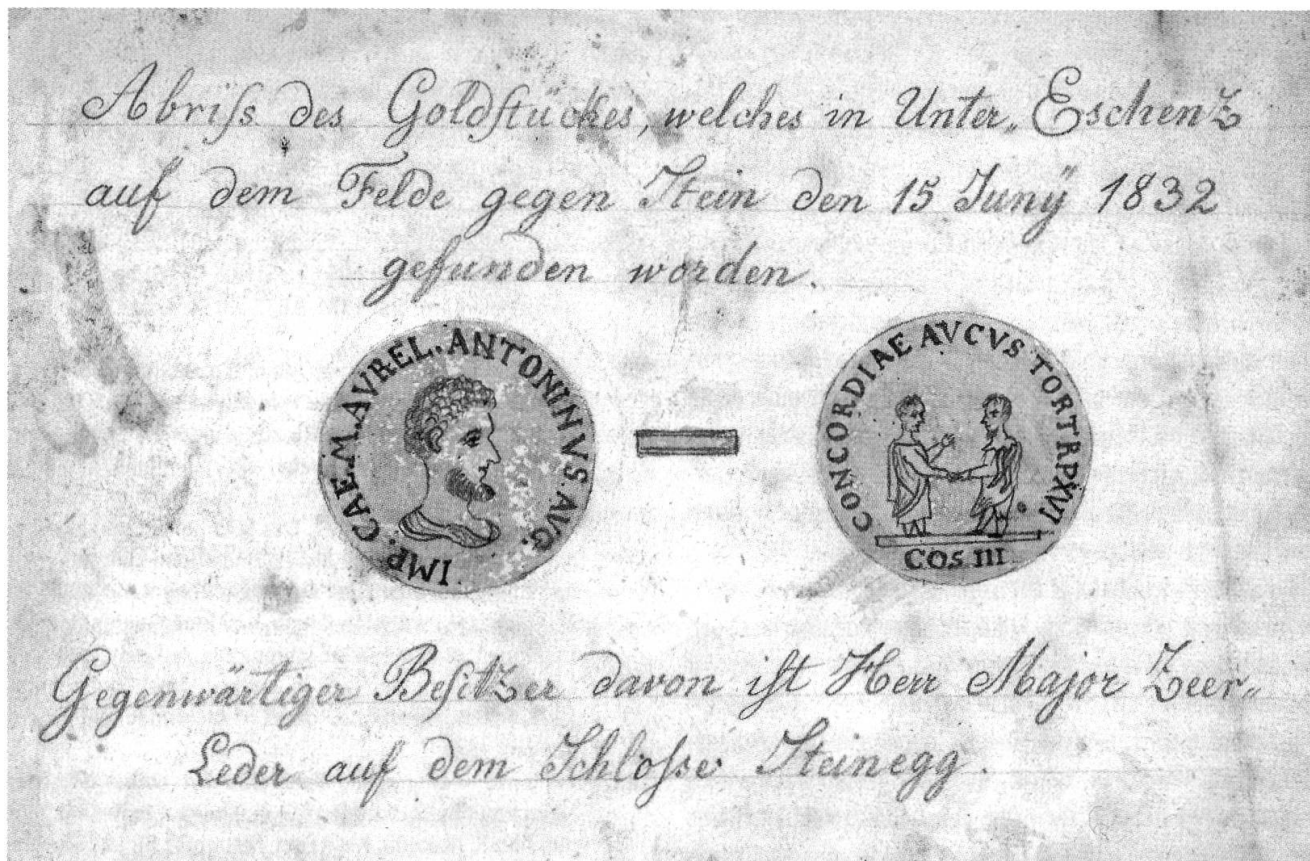 Abriſs des Goldſtückes, welches in Unter„Eschenz
auf dem Felde gegen Stein den 15 Junÿ 1832
gefunden worden.
IMP. CAE. M. AVREL. ANTONINVS. AVG.
CONCORDIAE AVCVS TORTRPXVI
COS III
Gegenwärtiger Beſitzer davon iſt Herr Major Zeer„
Leder auf dem Schloſse Steinegg.